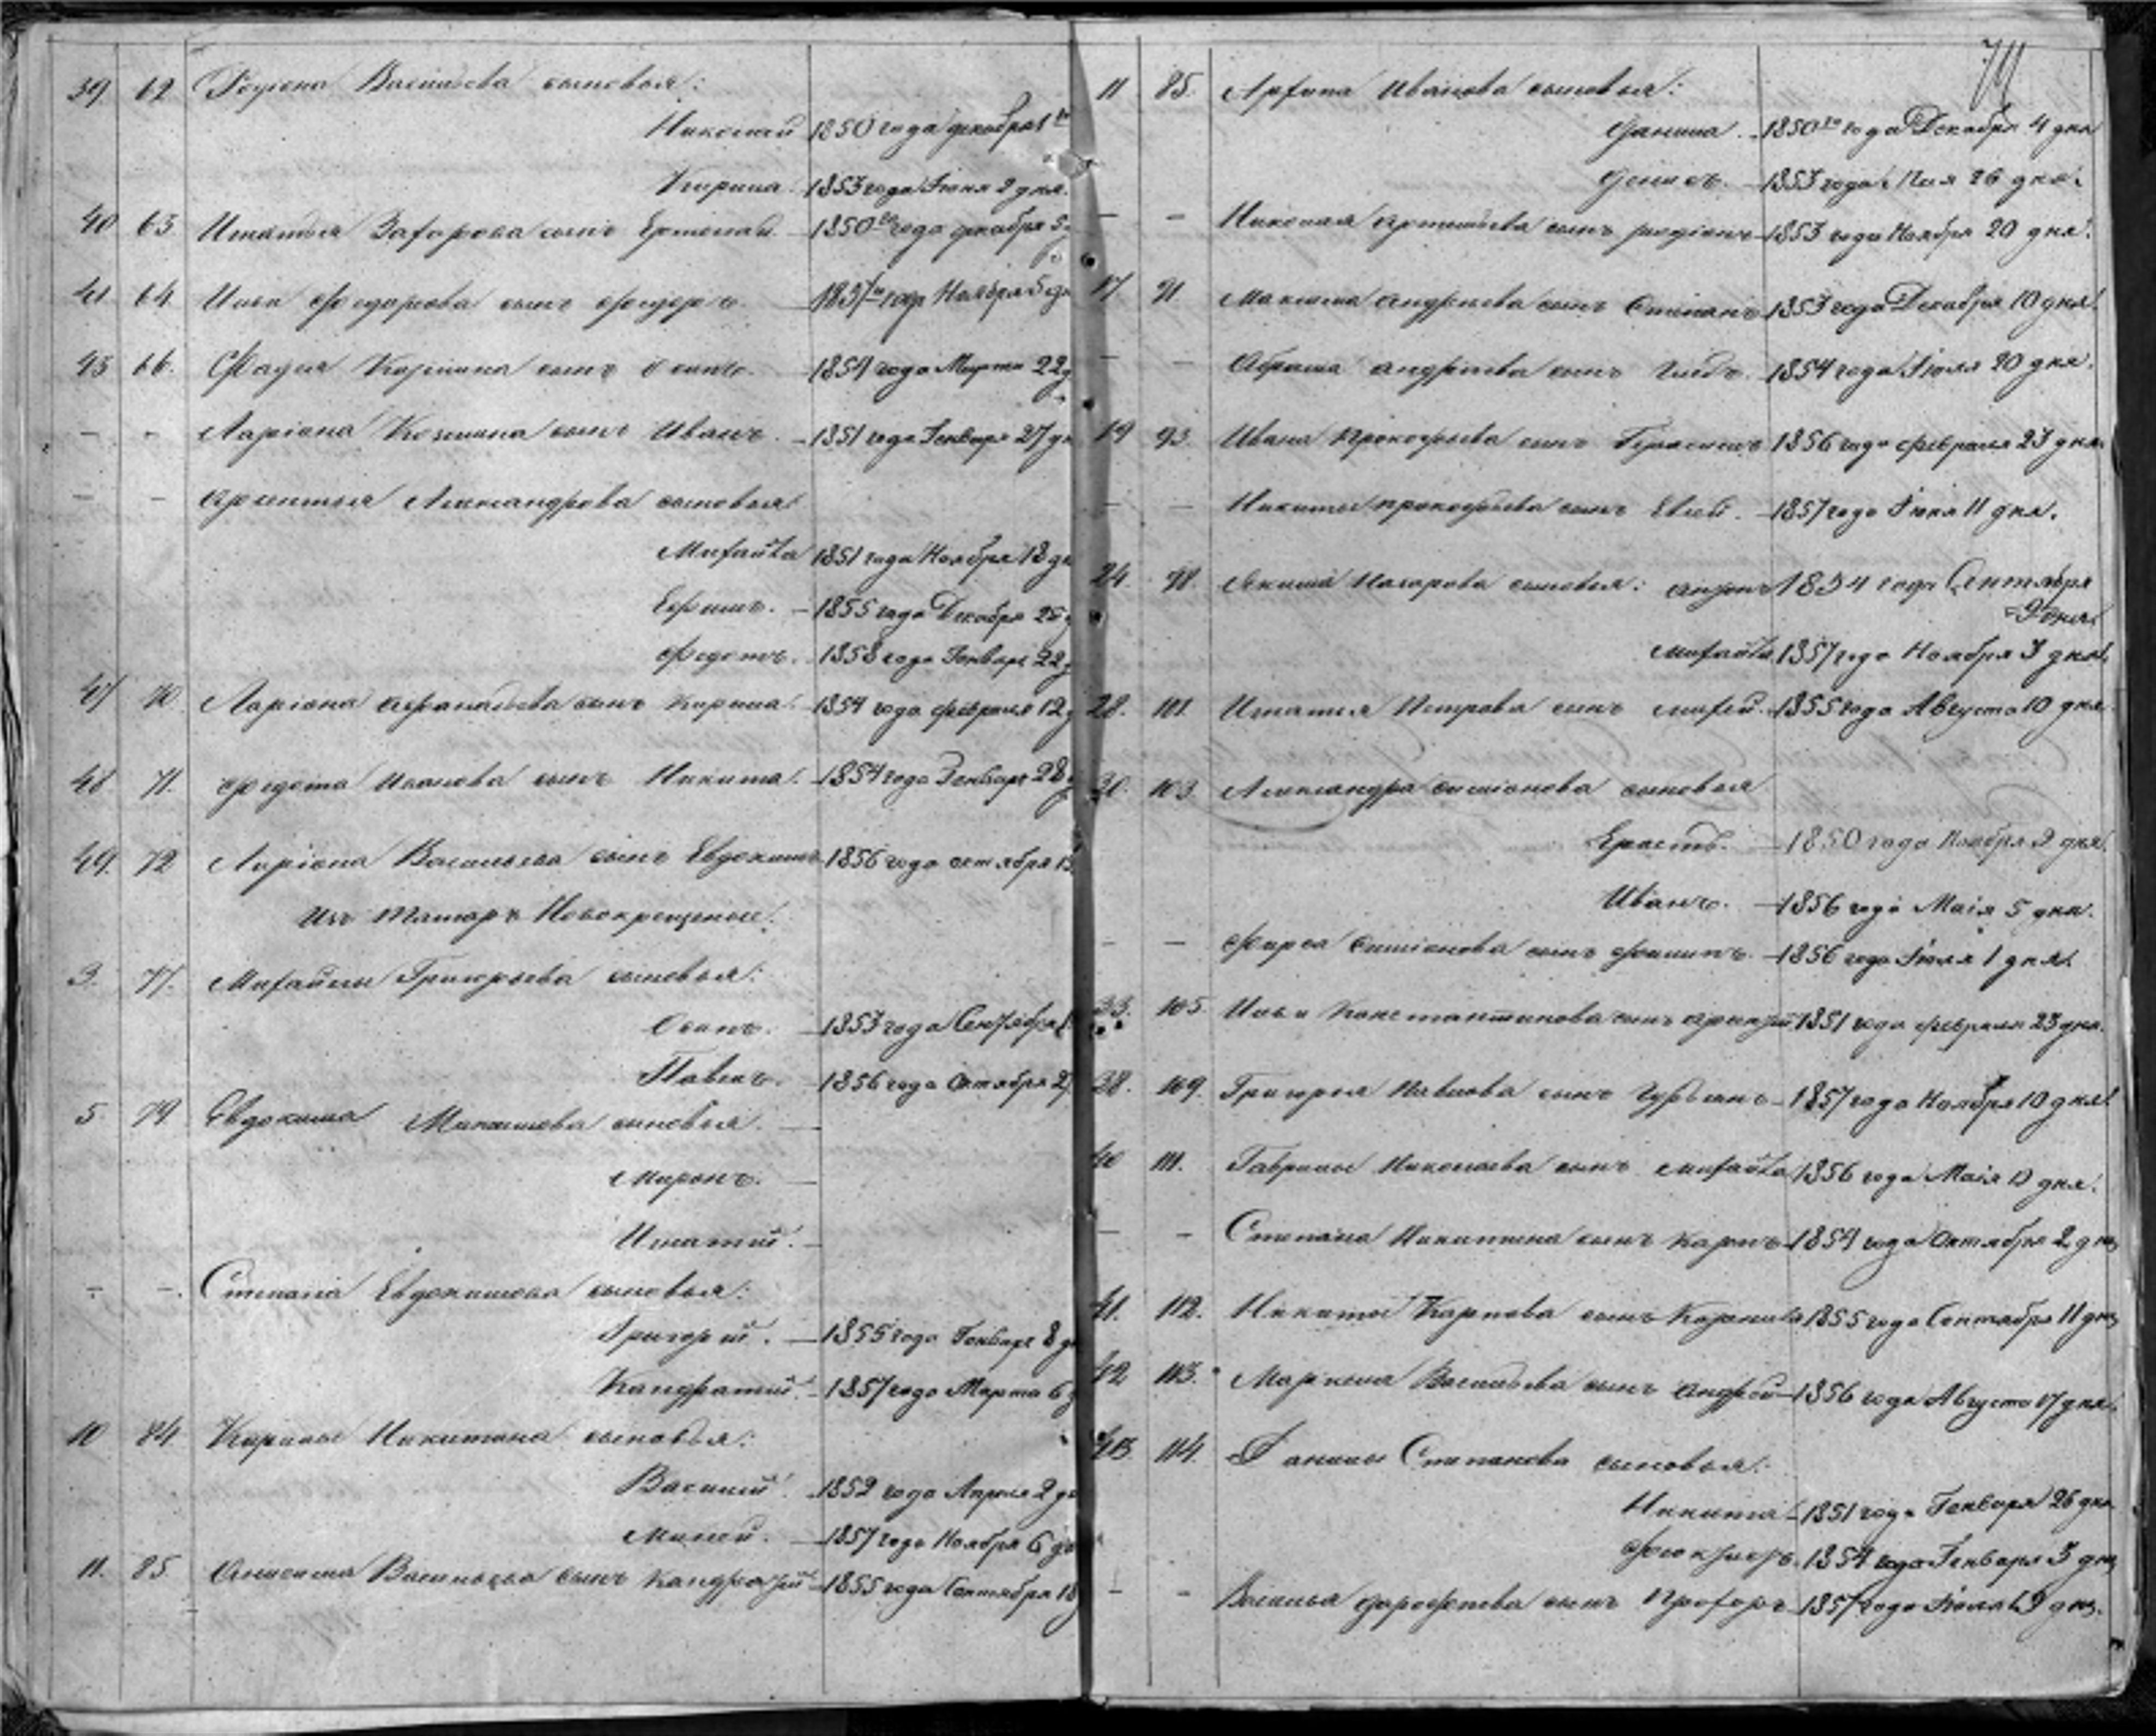 39 62 Родiона Васильева сыновья:
Николай 1850 года декабря 1го
Кирила 1853 года Iюня 2 дня.
40 63 Игнатья Захарова сынъ Ермолай 1850го года декабря 5
41 64 Ильи Федорова сынъ Федоръ 1857го года Ноября 5 д
43 66. Фадея сынъ Осипъ. 1854 года Марта 22
- - Ларiона Козмина сынъ Иванъ. 1851 года Генваря 27 д
- - Арсентья Александрова сыновья
Михайла 1851 года Ноября 18 д
Ефимъ. 1855 года Декабря 25
Федотъ. 1858 года Генваря 22
47 70 Ларiона Афанасьева сынъ Кирила. 1854 года февраля 12
48 71. Федота Иванова сынъ Никита. 1854 года Генваря 28
49. 72 Ларiона Васильева сынъ Евдокимъ 1856 года октября 13
Изъ Татаръ Новокрещеные.
3. 77. Михайлы Григорьева сыновья:
Осипъ. 1853 года Сентября
Павелъ. 1856 года Октября 2
5 79 Евдокима сыновья.
Миронъ.
Игнатий.
- - Степана Евдокимова сыновья:
Григорий. 1855 года Генваря 8 д
Кандратий. 1857 года Марта 6
10 84 Кирилы Никитина сыновья:
Василий. 1852 года Апреля 2 д
1857 года Ноября 6 д
11. 85. Анисима Васильева сынъ Кандратий 1855 года Сентября 18
11 85. Архипа Иванова сыновья:
Данила. 1850го года Декабря 4 дня
Денисъ. 1853 года Мая 26 дня.
- - Николая Артемьева сынъ Родiонъ 1853 года Ноября 20 дня.
17 91 Максима Андреева сынъ Степанъ 1853 года Декабря 10 дня.
- - Абрама Андреева сынъ Глебъ. 1854 года Iюля 20 дня.
19 93. Ивана Прокофьева сынъ Герасимъ 1856 года февраля 23 дня
- - Никиты Прокофьева сынъ 1857 года Iюня 11 дня.
24. 98. Якима Назарова сыновья: 1854 года Сентября
9 дня.
Михайла 1857 года Ноября 3 дня.
28. 101. Игнатья Петрова сынъ 1855 года Августа 10 дня.
30. 103. Александра Симiонова сыновья
Ерастъ. 1850 года Ноября 2 дня.
Иванъ. 1856 года Маiя 5 дня.
- - Фирса Симiонова сынъ Филипъ. 1856 года Iюля 1 дня.
33. 105. Ильи Константинова сынъ 1851 года февраля 23 дня.
38. 109. Григорья Павлова сынъ Гурьянъ 1857 года Ноября 10 дня.
40 111. Гаврилы Николаева сынъ Михайла 1856 года Маiя 13 дня.
- - Степана Никитина сынъ Карпъ 1854 года Октября 2 дня
41. 112. Никиты Карпова сынъ Корнила 1855 года Сентября 11 дня
42 113. Маркела Васильева сынъ Андрей 1856 года Августа 17 дня.
43 114. Данилы Степанова сыновья:
Никита 1851 года Генваря 26 дня
1854 года Генваря 3 дня
- - Василья Дорофеева сынъ Прохоръ 1857 года Iюля 9 дня.